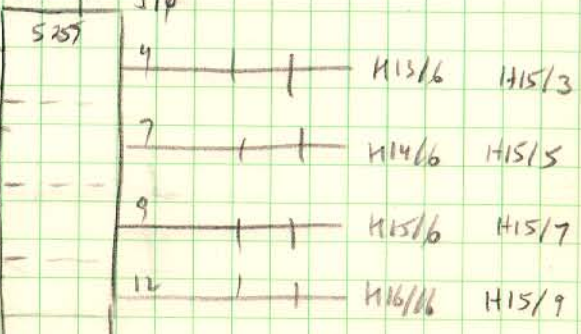 S257
4 H13/6 H15/3
7 H14/6 H15/5
9 H15/6 H15/7
12 H16/16 H15/9